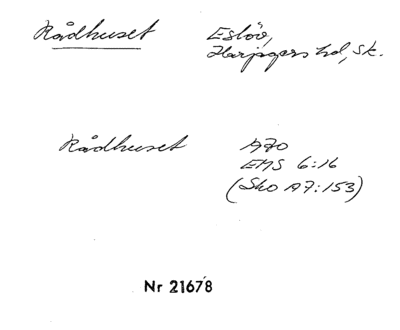 Rådhuset Eslöv,
Harjagers hd, Sk.
Rådhuset A70
EMS 6:16
(Sko A7:153)
Nr 21678